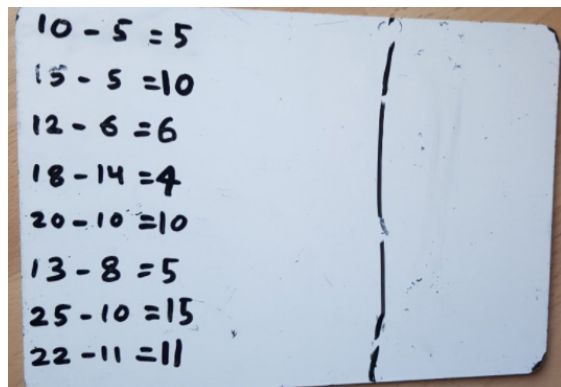 10 - 5 = 5
15 - 5 = 10
12 - 6 = 6
18 - 14 = 4
20 - 10 = 10
13 - 8 = 5
25 - 10 = 15
22 - 11 = 11